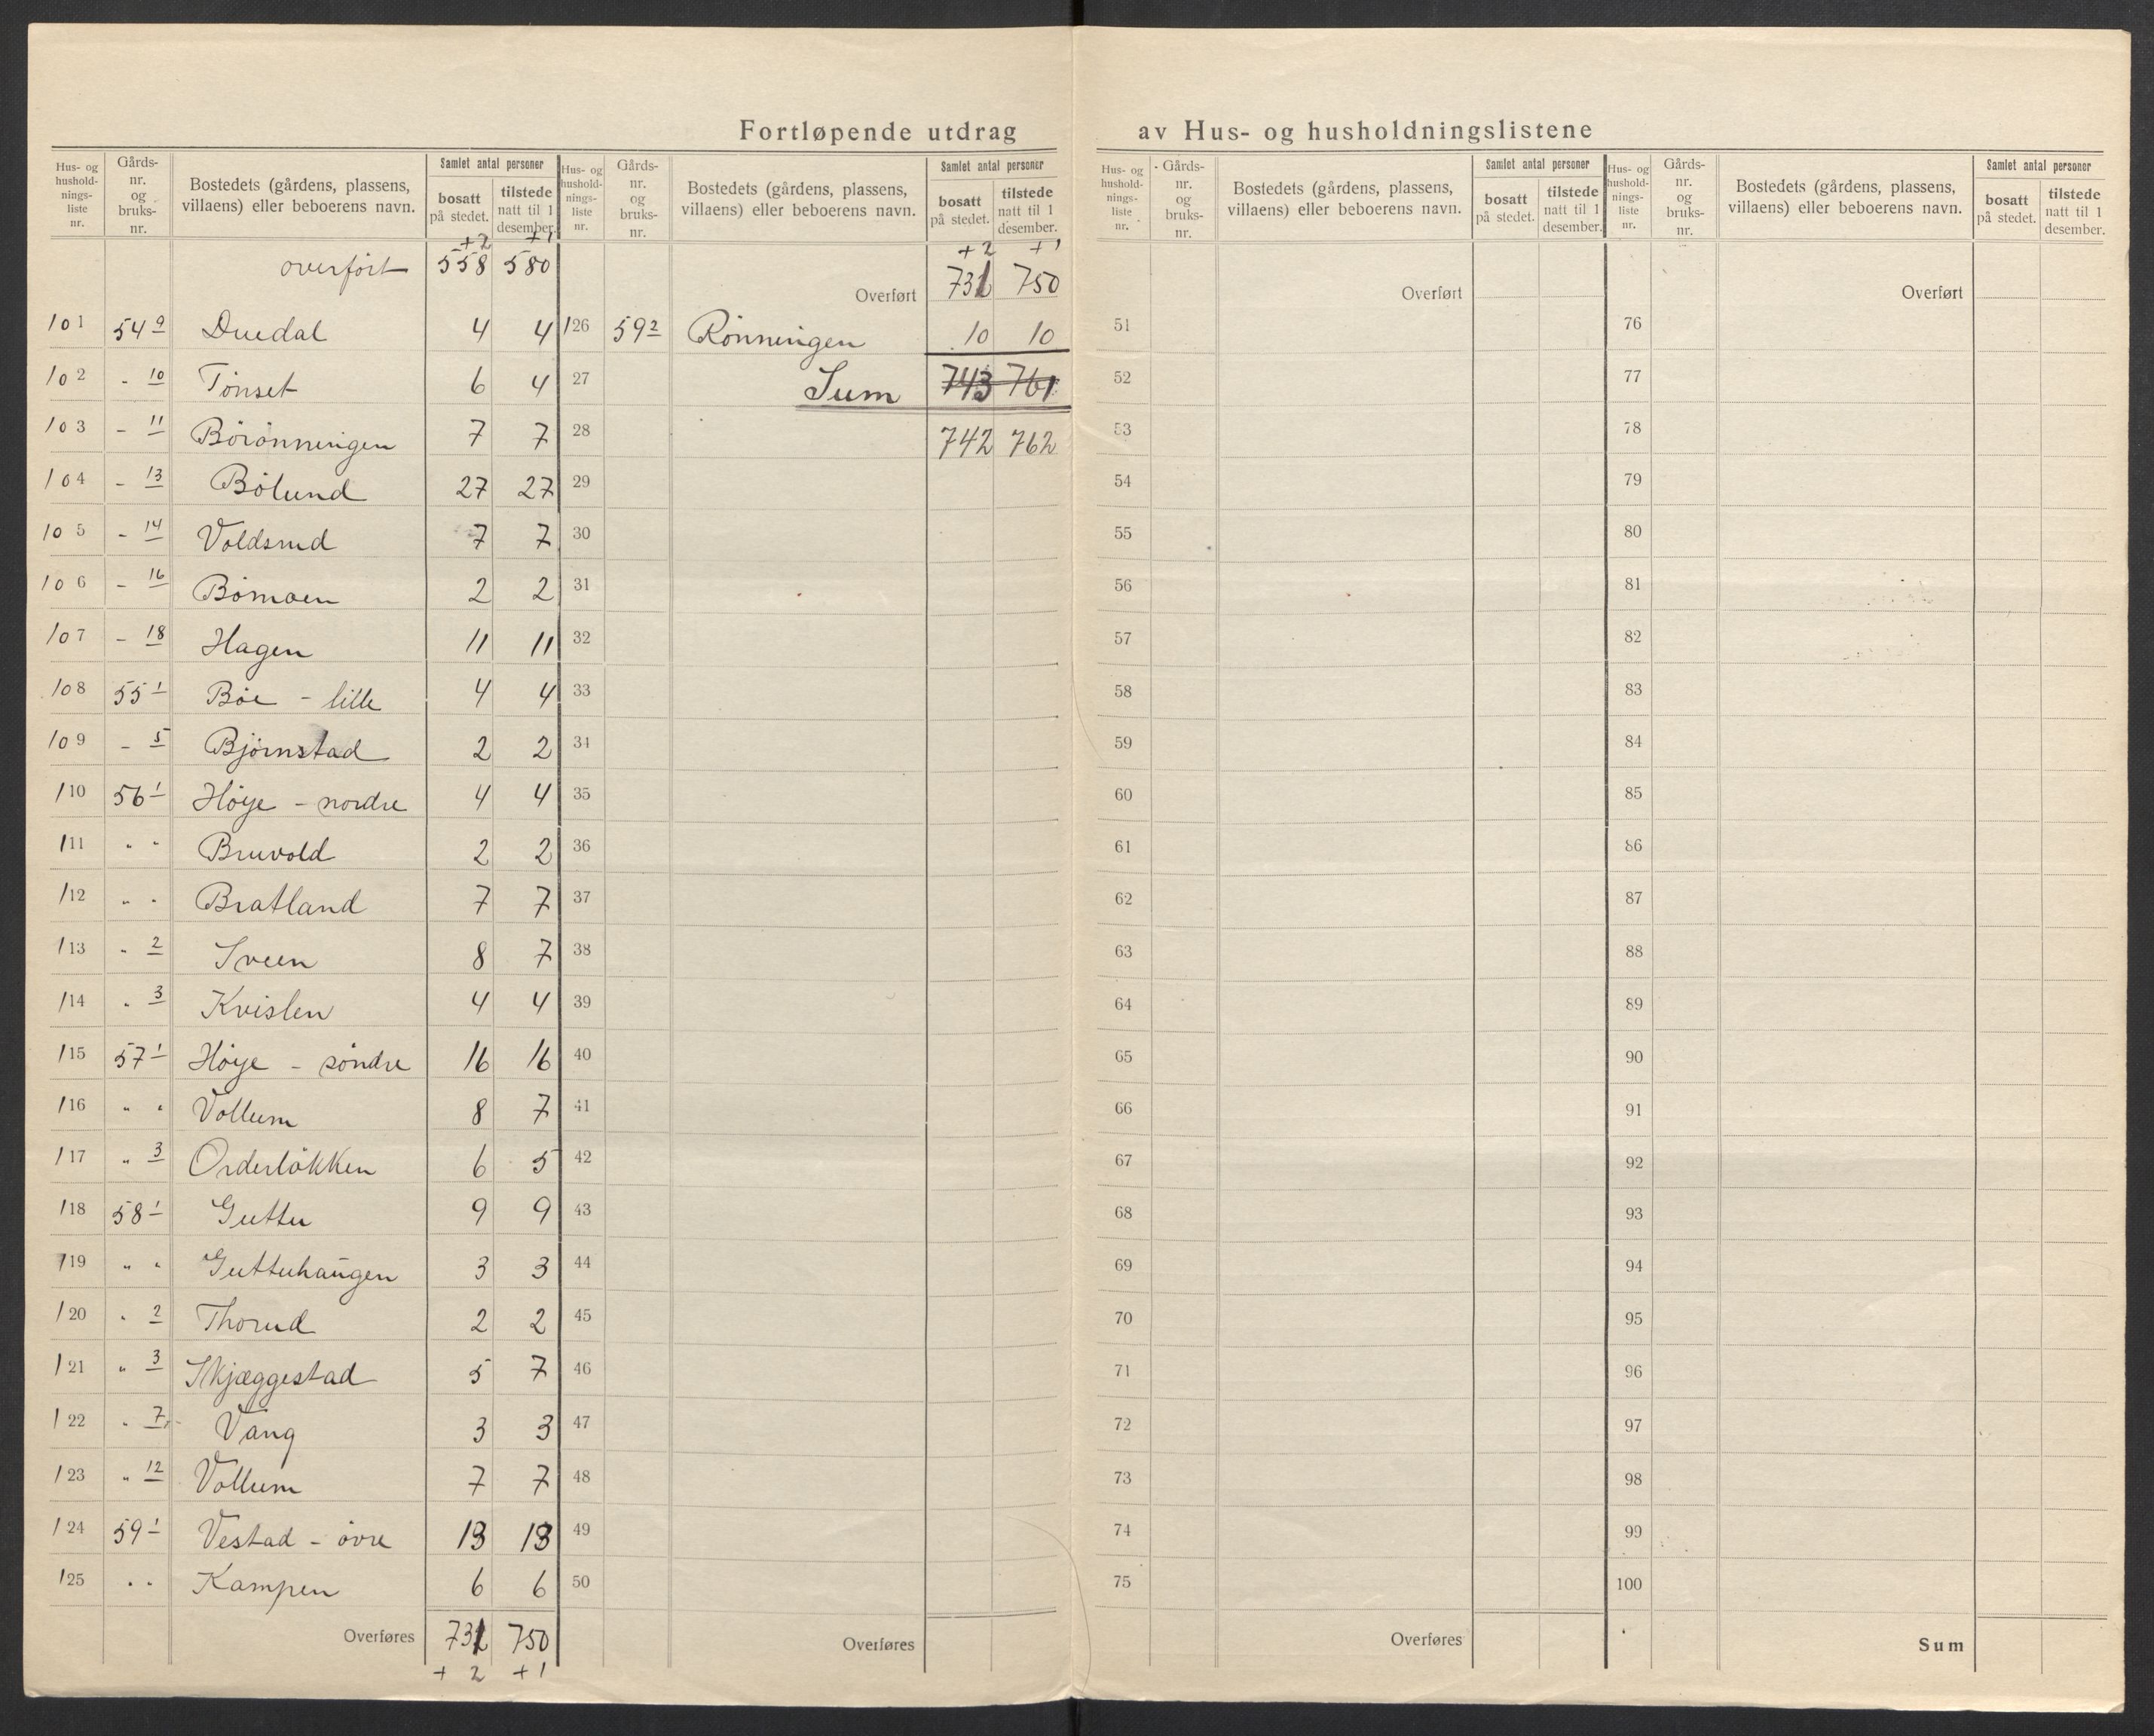 Fortløpende utdrag av Hus- og husholdningslistene
Hus- og hushold- nings- liste nr. | Gårds- nr. og bruks- nr. | Bostedets (gårdens, plassens, villaens) eller beboerens navn. | Samlet antal personer | bosatt på stedet. | tilstede natt til 1 desember.
+2 +1
overført 558 580
101 54 9 Duedal 4 4
102 - 10 Tönset 6 4
103 - 11 Börönningen 7 7
104 - 13 Bölund 27 27
105 - 14 Voldsrud 7 7
106 - 16 Bömoen 2 2
107 - 18 Hagen 11 11
108 55 1 Böe - lille 4 4
109 - 5 Björnstad 2 2
110 56 1 Höye - nordre 4 4
111 " " Bruvold 2 2
112 " " Bratland 7 7
113 " 2 Sveen 8 7
114 " 3 Kvislen 4 4
115 57 1 Höye - söndre 16 16
116 " " Vollum 8 7
117 " 3 Orderlökken 6 5
118 58 1 Guttu 9 9
119 " " Guttuhaugen 3 3
120 " 2 Thorud 2 2
121 " 3 Skjæggestad 5 7
122 " 7 Vang 3 3
123 " 12 Vollum 7 7
124 59 1 Vestad - övre 13 13
125 " " Kampen 6 6
Overføres 731 750
+ 2 +1
Hus- og hushold- nings- liste nr. | Gårds- nr. og bruks- nr. | Bostedets (gårdens, plassens, villaens) eller beboerens navn. | Samlet antal personer | bosatt på stedet. | tilstede natt til 1 desember.
+2 +1
Overført 731 750
126 59 2 Rönningen 10 10
27 Sum 743 761
28 742 762
29
30
31
32
33
34
35
36
37
38
39
40
41
42
43
44
45
46
47
48
49
50
Overføres
Hus- og hushold- nings- liste nr. | Gårds- nr. og bruks- nr. | Bostedets (gårdens, plassens, villaens) eller beboerens navn. | Samlet antal personer | bosatt på stedet. | tilstede natt til 1 desember.
Overført
51
52
53
54
55
56
57
58
59
60
61
62
63
64
65
66
67
68
69
70
71
72
73
74
75
Overføres
Hus- og hushold- nings- liste nr. | Gårds- nr. og bruks- nr. | Bostedets (gårdens, plassens, villaens) eller beboerens navn. | Samlet antal personer | bosatt på stedet. | tilstede natt til 1 desember.
Overført
76
77
78
79
80
81
82
83
84
85
86
87
88
89
90
91
92
93
94
95
96
97
98
99
100
Sum